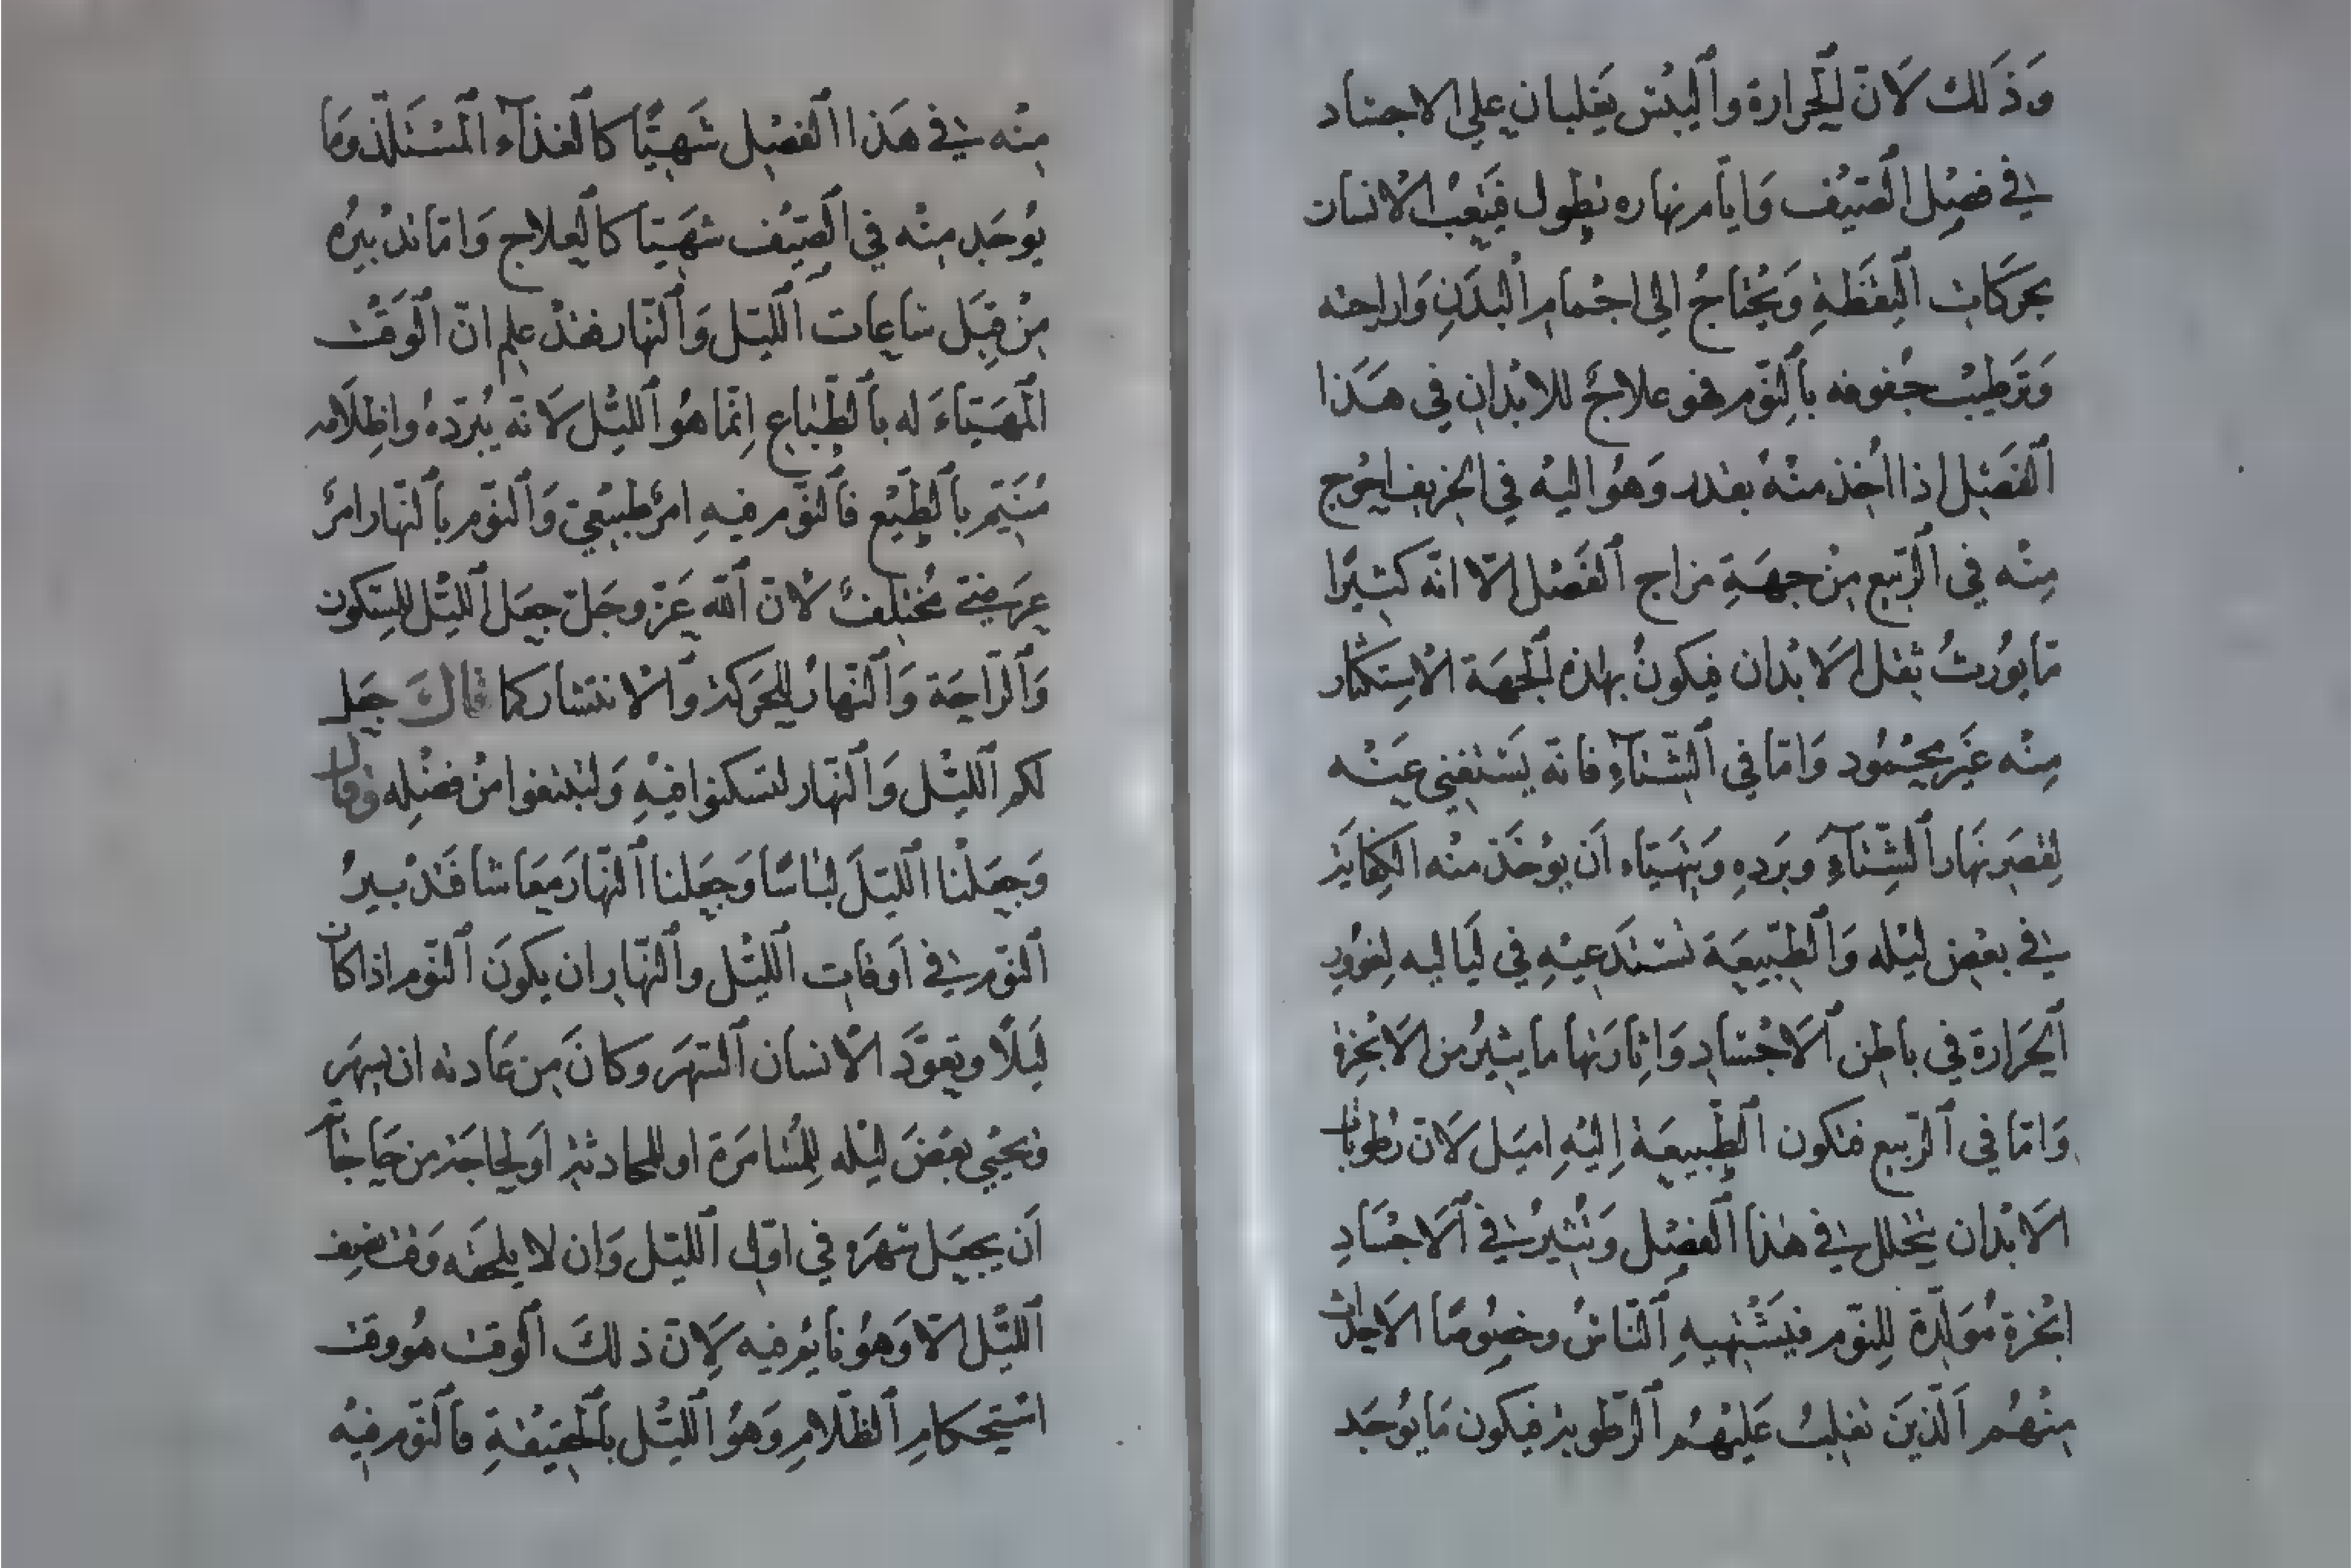 وَذَلك لَانّ الحَرارة واليبْس يَغلبان علي الاجسَاد
في فصْل الصَيْف وَايّام نهاره تطول فَيَتعبُ الانسان
بحَركات اليَقظَةِ وَيحْتاجُ الي اجْمام البَدَنِ وَاراحته
وَتَرطيْب جُفوفه بالنّوم فهو علاجٌ للابْدان في هَذا
الفَصْل اذا اُخذ منْهُ بقدر وَهُو اليْه في الخريف احْوج
مِنْه في الرّبيع مِنْ جهَةِ مزاج الفَصْل الّا انّه كثيْرًا
مّا يُورثُ ثقل الَابْدان فيكونُ بهذه الجهَة الاسِتكثار
مِنْه غَير محْمُود وَامّا في الشّتآءِ فانّه يَسْتغني عَنْه
لِقصَر نَهار الشّتآءِ وبَردهِ وَيتهَيّاء اَن يوْخَذ منْه الكِفَاية
في بعْض ليْله وَالطّبيعَة تسْتدَعيْهِ في لَياليه لِغؤرِ
الحَرارة في باطن الَاجْسَادِ وَاِثارَتها ما يثيرُ من الابْخرة
وَامّا في الرّبيع فتكون الطّبيعَة اِليْهِ اميَل لَانّ رُطوبات
الَابْدان تَتحلل في هذا الفصْل وَتُثيرُ في الَاجْسَادِ
ابخرة مُوَلّدة لِلنّوم فيَشْتهيهِ النّاسُ وخصُوصًا الَاحداث
منْهُم الّذينَ تغلبُ عَليْهم الرّطوبة فيكون مَا يوُجَد
مِنْه في هَذا الفصْل شَهيّا كالغذآء المسْتلذّ وَما
يوُجَد منْه في الصَيْف شهَيّا كالعلاج وَامّا تدْبيرُه
مِنْ قِبَل سَاعات الليْل وَالنّهار فقدْ علم انّ الوَقْت
المهَيّاءَ له بالطّباع اِنّما هُو الليْل لَانّه يُبرّدهُ واِظلَامه
مُنَيّم بالطّبْع فالنّوم فيهِ امرٌ طبيْعيّ وَالنّوم بالنّهار امرٌ
عرَضيّ مُختلفٌ لْانّ اللّه عَزّ وجَلّ جعَل الليْل للسّكون
وَالرّاحَة وَالنّهارُ للحَركة وَالْانتشار كما قالَ جعَل
لكم الليْل وَالنّهار لتسكنوا فيْهِ وَلتبْتغوا منْ فضْلِه وَقال
وَجعَلْنا الليْلَ لبَاسًا وَجعَلنا النّهارَ مَعَاشا فَتدْبيرُ
النّوم في اوَقات الليْل والنّهار ان يكونَ النّوم اذا كان
لَيلًا وتعوّدَ الْانسان السّهَر وكانَ مِن عَادته ان يسهَر
وَيحيْي بعْضَ ليْله لِلمُسَامَرة او للمحادثة اَو لحاجَة من حَاجاته
اَن يجعَل سَهرَه في اوّل الليْل وَان لا يلحقه وَقت نصْف
الليْل الّا وَهُو نايُم فيه لَانّ ذلكَ الوقت هُو وقت
اسْتحكام الظّلام وَهُو الليْل بالحَقيْقةِ فالنّوم فيْه